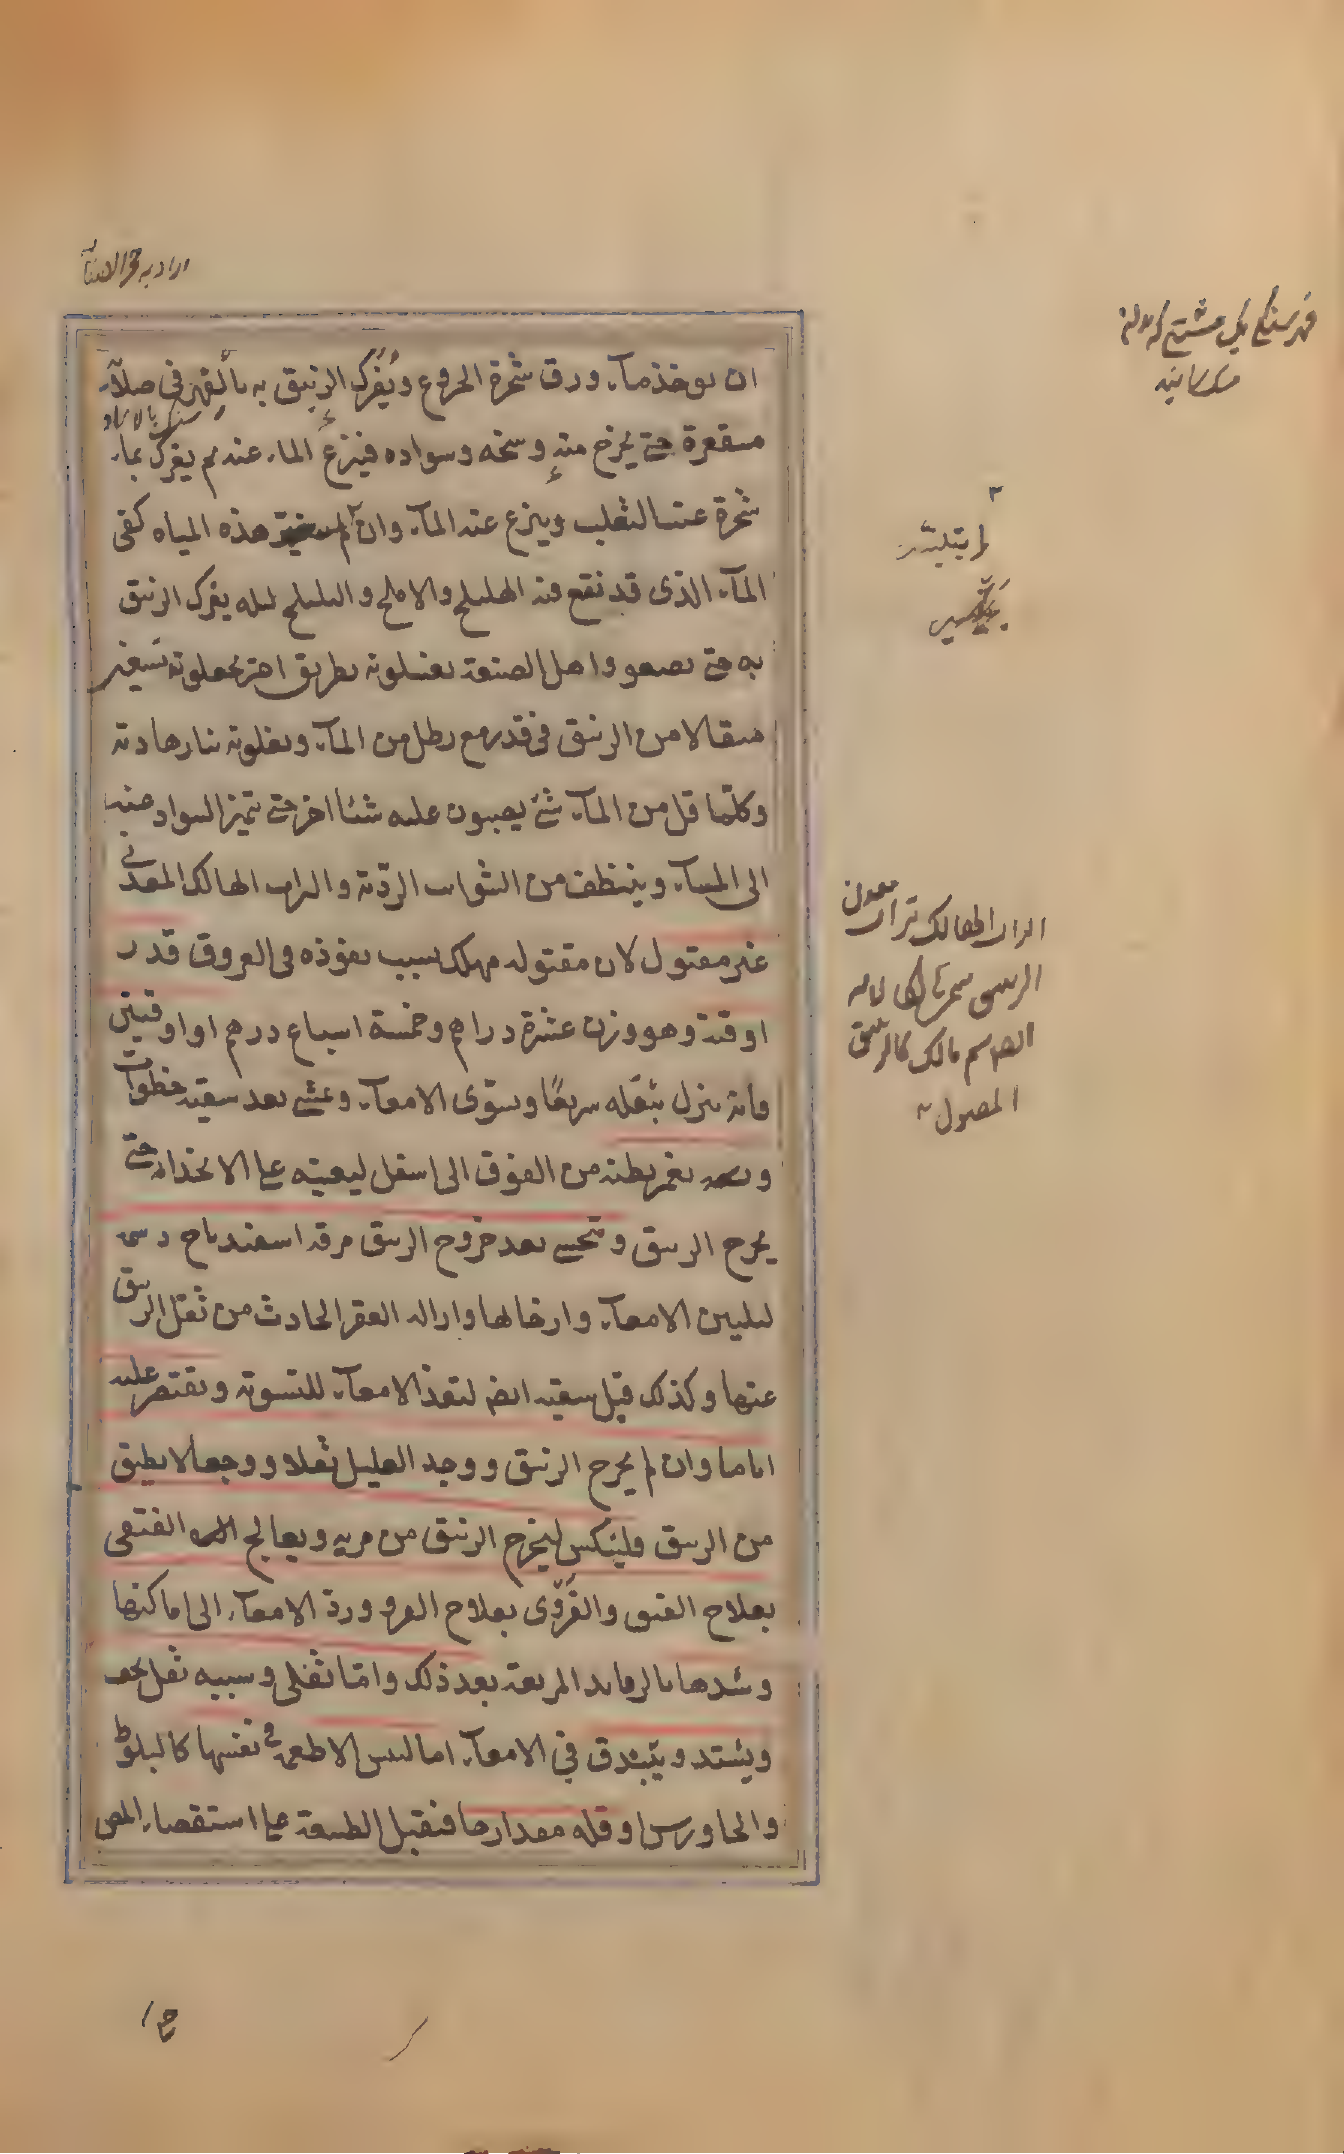 اراد به حجر
ان يوخذ مآء ورق شجرة الخروع ويُفرَك الزيبق به بالفهر فى صلآية
سنك بالا
مقعرة حتى يخرج منه وسخه وسواده فينزع المآء عنه ثم يفرك بمآء
شجرة عنب الثعلب وينزع عنه المآء وان لم هذه المياه كفى
المآء الذى قد نقع فيه الهليلج والاملج والبليلج ليله يفرك الزيبق
به حتى يصفو واهل الصنعة يغسلونه بطريق اخر يجعلونه
مثقالا من الزيبق فى قدر مع رطل من المآء ويغلونه بنار هادية
وكلما قل من المآء شئ يصبون عليه شيئا اخر حتى يتميز السواد عنه
الى المآء وينتظف من الشوائب الرديّة والتراب الهالك المعدنى
غير مقتول لان مقتوله مهلك بسبب نفوذه فى العروق قدر
اوقية وهو وزن عشرة دراهم وخمسة اسباع درهم او اوقيتين
فانه ينزل بثقله سريعًا ويسوّى الامعآء ويمشى بعد سقيه خطوات
و يغمز بطنه من الفوق الى اسفل ليعينه على الانحدار حتى
يخرج الزيبق و يحسى بعد خروج الزيبق مرقة اسفيدباج دسمة
لتليين الامعآء وارخائها وازالة العقر الحادث من ثقل الزيبق
عنها وكذلك قبل سقيه ايضا لتعد الامعآء للتسوية ويقتصر عليه
اياما وان لم يخرج الزيبق ووجد العليل ثقلا ووجعا لا يطيق
من الزيبق فلينكس ليخرج الزيبق من مريه ويعالج الفتقى
بعلاج الفتق والقَروّى بعلاج القرو ورد الامعآء الى اماكنها
وشدها بالرفايد المربعة بعد ذلك وامّا ثفلى وسببه ثفل يجف
ويشتد ويتبندق فى الامعآء اما ليبس الاطعمة فى نفسها كالبلوط
والجاورس او قلة مقدارها فتقبل الطبيعة على استقصاء المص
فهر سنكى يك مشتى كه
التراب الهالك تراب معدن
الزيبق
اسم هالك كالزيبق
المصول